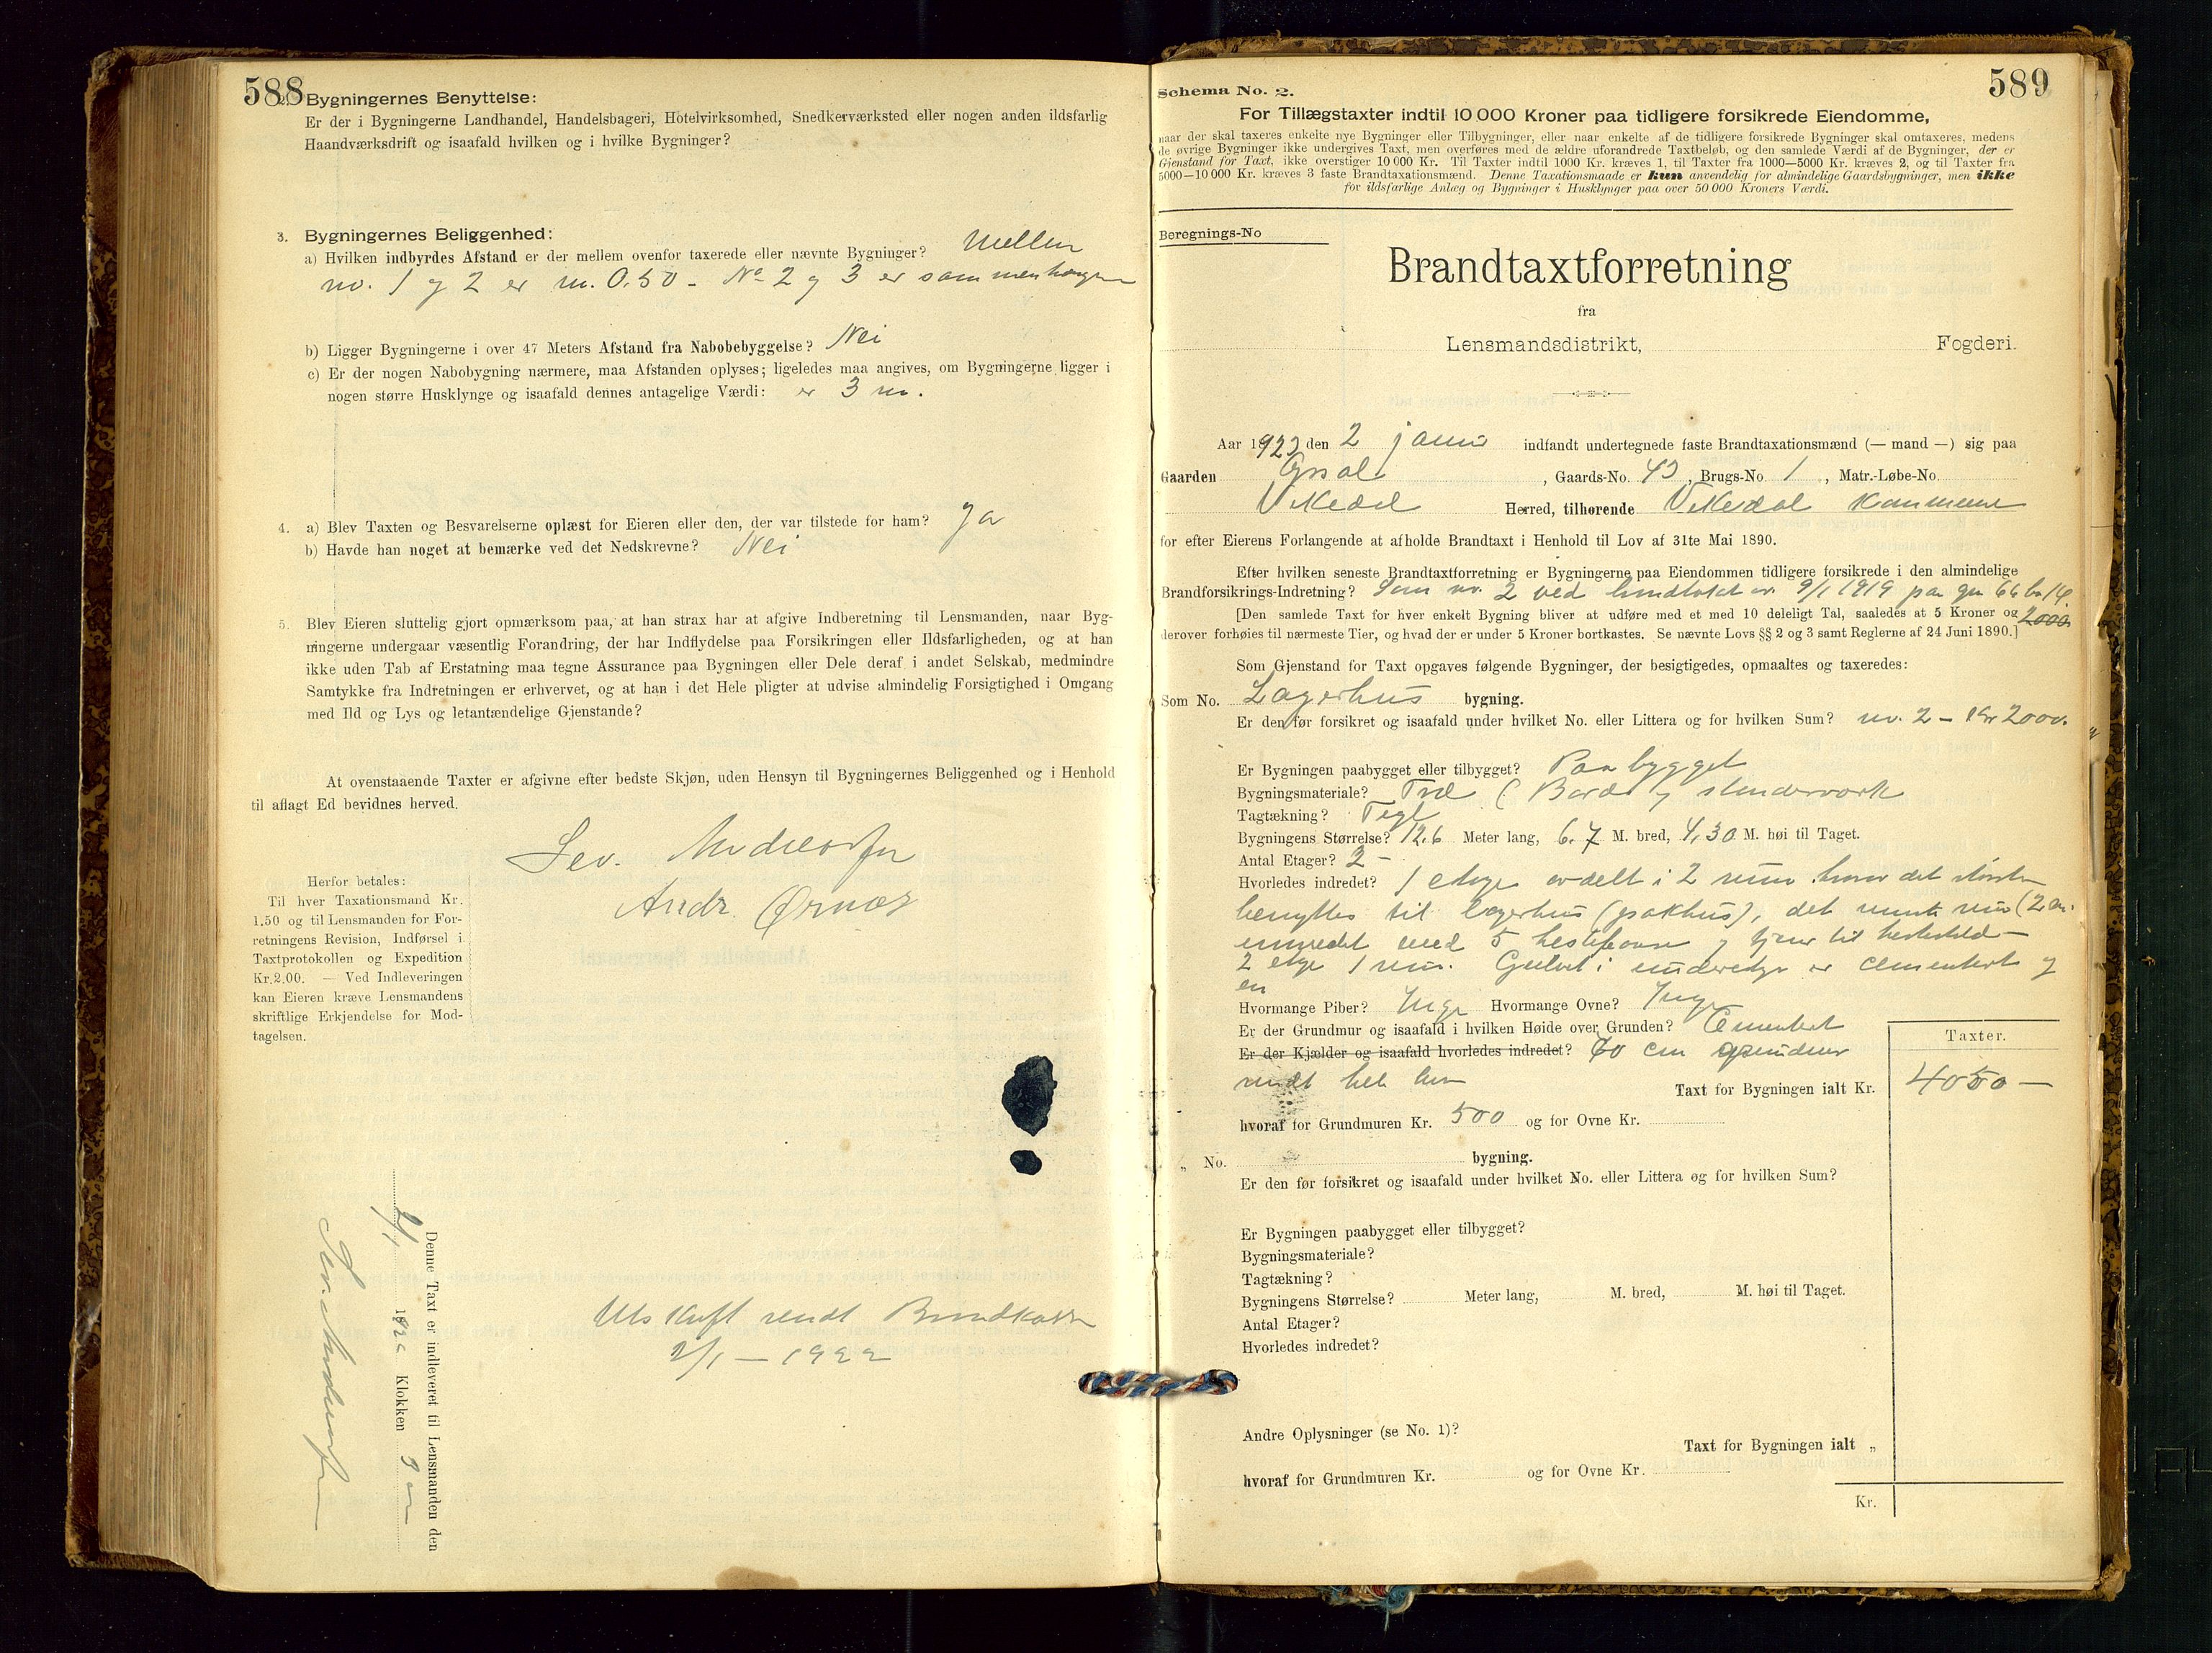 588
2. Bygningernes Benyttelse:
Er der i Bygningerne Landhandel, Handelsbageri, Hotelvirksomhed, Snedkerværksted eller nogen anden ildsfarlig
Haandværksdrift og isaafald hvilken og i hvilke Bygninger?
3. Bygningernes Beliggenhed:
a) Hvilken indbyrdes Afstand er der mellem ovenfor taxerede eller nævnte Bygninger? Mellem
no. 1 og 2 er m. 0.50 - No 2 og 3 er sammenhengen
b) Ligger Bygningerne i over 47 Meters Afstand fra Nabobebyggelse? Nei
c) Er der nogen Nabobygning nærmere, maa Afstanden oplyses; ligeledes maa angives, om Bygningerne ligger i
nogen større Husklynge og isaafald dennes antagelige Værdi: er 3 m.
4. a) Blev Taxten og Besvarelserne oplæst for Eieren eller den, der var tilstede for ham? Ja
b) Havde han noget at bemærke ved det Nedskrevne? Nei
5. Blev Eieren sluttelig gjort opmærksom paa, at han strax har at afgive Indberetning til Lensmanden, naar Byg-
ningerne undergaar væsentlig Forandring, der har Indflydelse paa Forsikringen eller Ildsfarligheden, og at han
ikke uden Tab af Erstatning maa tegne Assurance paa Bygningen eller Dele deraf i andet Selskab, medmindre
Samtykke fra Indretningen er erhvervet, og at han i det Hele pligter at udvise almindelig Forsigtighed i Omgang
med Ild og Lys og letantændelige Gjenstande?
At ovenstaaende Taxter er afgivne efter bedste Skjøn, uden Hensyn til Bygningernes Beliggenhed og i Henhold
til aflagt Ed bevidnes herved.
Sev.
Andr. Ørnes
Herfor betales:
Til hver Taxationsmand Kr.
1.50 og til Lensmanden for For-
retningens Revision, Indførsel i
Taxtprotokollen og Expedition
Kr. 2.00. — Ved Indleveringen
kan Eieren kræve Lensmandens
skriftlige Erkjendelse for Mod-
tagelsen.
Denne Taxt er indleveret til Lensmanden den
2/1 1922 Klokken 3
Utskrift sendt Brandkassen
2/1 - 1922
589
Schema No. 2.
For Tillægstaxter indtil 10 000 Kroner paa tidligere forsikrede Eiendomme,
naar der skal taxeres enkelte nye Bygninger eller Tilbygninger, eller naar enkelte af de tidligere forsikrede Bygninger skal omtaxeres, medens
de øvrige Bygninger ikke undergives Taxt, men overføres med de ældre uforandrede Taxtbeløb, og den samlede Værdi af de Bygninger, der er
Gjenstand for Taxt, ikke overstiger 10 000 Kr. Til Taxter indtil 1000 Kr. kræves 1, til Taxter fra 1000—5000 Kr. kræves 2, og til Taxter fra
5000—10 000 Kr. kræves 3 faste Brandtaxationsmænd. Denne Taxationsmaade er kun anvendelig for almindelige Gaardsbygninger, men ikke
for ildsfarlige Anlæg og Bygninger i Husklynger paa over 50 000 Kroners Værdi.
Beregnings-No
Brandtaxtforretning
fra
Lensmandsdistrikt, Fogderi.
Aar 1922 den 2 indfandt undertegnede faste Brandtaxationsmænd (— mand —) sig paa
Gaarden , Gaards-No. 43, Brugs-No. 1, Matr.-Løbe-No.
Vikedal Herred, tilhørende Vikedal kommune
for efter Eierens Forlangende at afholde Brandtaxt i Henhold til Lov af 31te Mai 1890.
Efter hvilken seneste Brandtaxtforretning er Bygningerne paa Eiendommen tidligere forsikrede i den almindelige
Brandforsikrings-Indretning? Som no. 2 ved av 9/1 1919 paa gn 66 bn 14.
2000
[Den samlede Taxt for hver enkelt Bygning bliver at udføre med et med 10 deleligt Tal, saaledes at 5 Kroner og
derover forhøies til nærmeste Tier, og hvad der er under 5 Kroner bortkastes. Se nævnte Lovs §§ 2 og 3 samt Reglerne af 24 Juni 1890.]
Som Gjenstand for Taxt opgaves følgende Bygninger, der besigtigedes, opmaaltes og taxeredes:
Som No. Lagerhus bygning.
Er den før forsikret og isaafald under hvilket No. eller Littera og for hvilken Sum? no. 2 - Kr 2000.
Er Bygningen paabygget eller tilbygget? Paabygget
Bygningsmateriale? Træ (Bord og stenderverk
Tagtækning? Tegl
Bygningens Størrelse? 12.6 Meter lang, 6.7 M. bred, 4.30 M. høi til Taget.
Antal Etager? 2 -
Hvorledes indredet? 1 etage avdelt i 2 rum hvor det største
benyttes til lagerhus (pakhus), det
med 5 og til
2 etage 1 rum. Gulvet i er cementert og
en
Hvormange Piber? Inge Hvormange Ovne? Inge
Er der Grundmur og isaafald i hvilken Høide over Grunden? Cementert
Er der Kjælder og isaafald hvorledes indredet? 60 cm grundmur
rundt hele Taxt for Bygningen ialt Kr.
Taxter.
4050 —
hvoraf for Grundmuren Kr. 500 og for Ovne Kr.
„ No. bygning.
Er den før forsikret og isaafald under hvilket No. eller Littera og for hvilken Sum?
Er Bygningen paabygget eller tilbygget?
Bygningsmateriale?
Tagtækning?
Bygningens Størrelse? Meter lang, M. bred, M. høi til Taget.
Antal Etager?
Hvorledes indredet?
Andre Oplysninger (se No. 1)?
Taxt for Bygningen ialt „
hvoraf for Grundmuren Kr. og for Ovne Kr.
Kr.